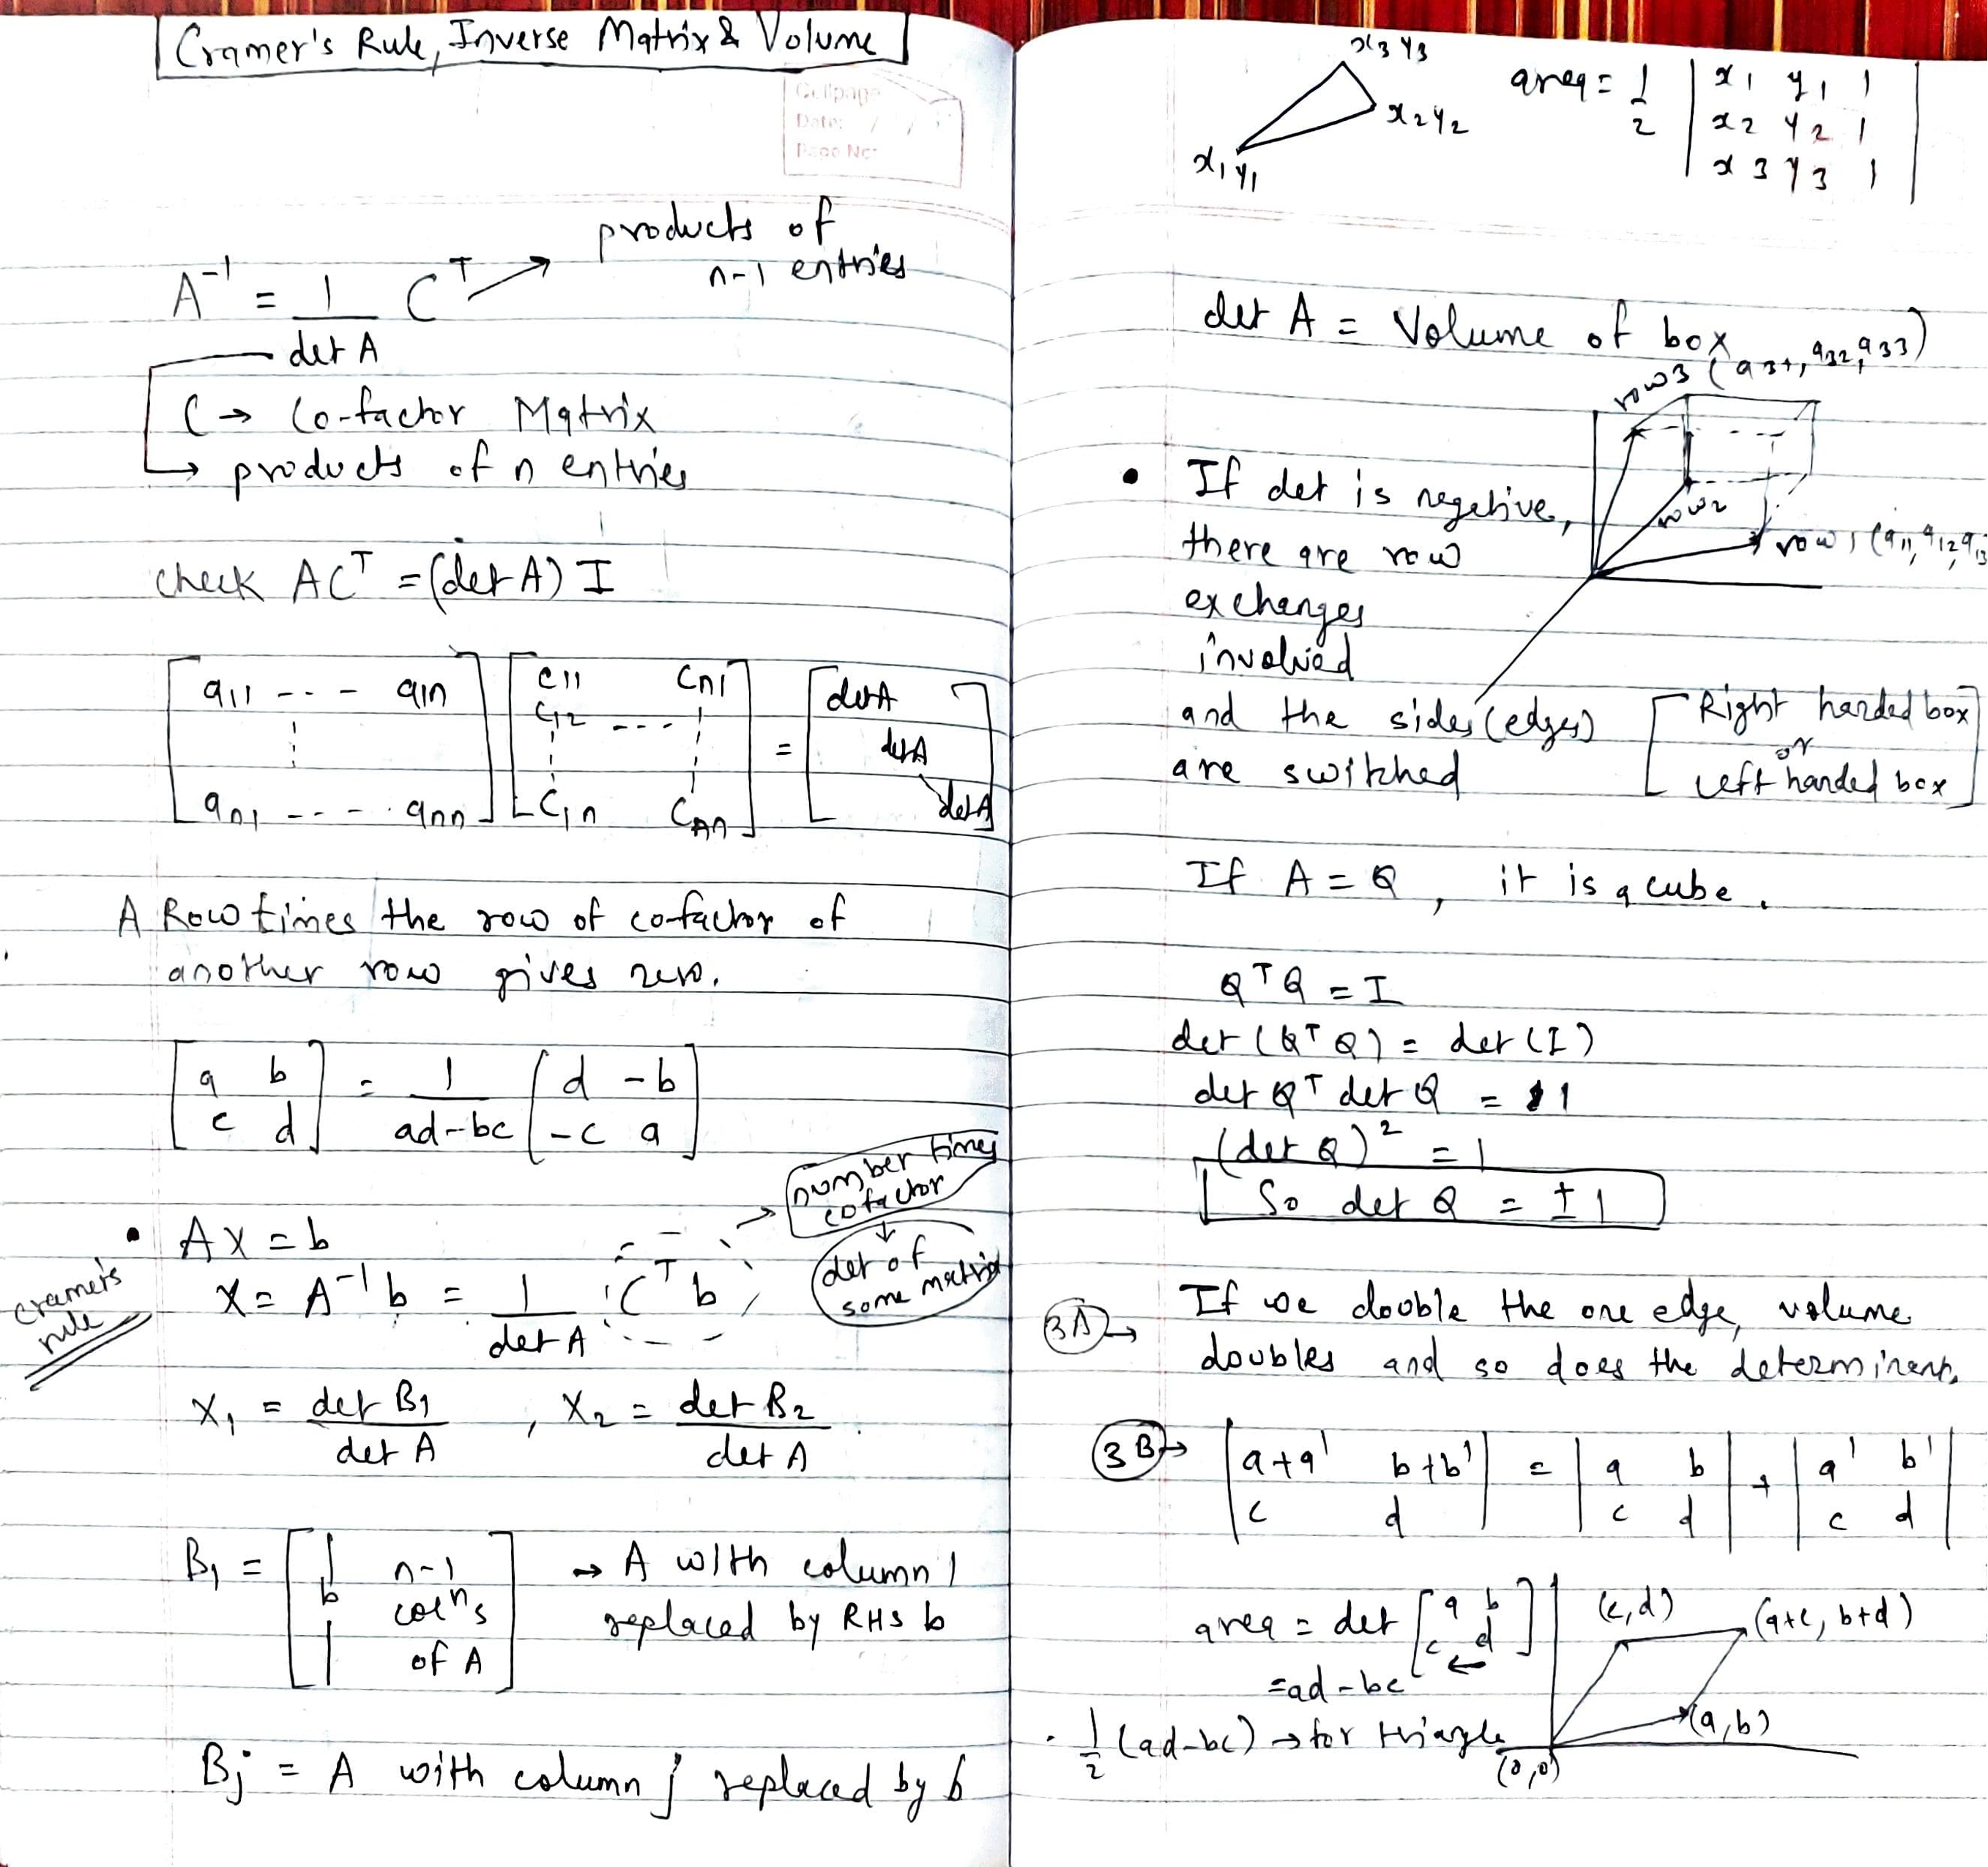 Cramer's Rule, Inverse Matrix & Volume
Cellpage
Date: / /
Page No:
A⁻¹ = 1/det A Cᵀ → products of n-1 entries
C → Co-factor Matrix
↳ products of n entries
check ACᵀ = (det A) I
[a11 --- a1n] [c11 cn1] = [det A]
[c12 --- ] [det A]
[an1 --- ann] [c1n cnn] [det A]
A Row times the row of co-factor of
another row gives zero.
[a b] = 1/ad-bc [d -b]
[c d] [-c a]
• AX = b
cramer's rule
X = A⁻¹ b = 1/det A Cᵀ b
number times cofactor
↓
det of some matrix
X₁ = det B₁/det A , X₂ = det B₂/det A
B₁ = [b n-1 colⁿs of A] → A with column 1
replaced by RHS b
Bj = A with column j replaced by b
x3 y3
x2 y2
x1 y1
area = 1/2 | x1 y1 1 |
| x2 y2 1 |
| x3 y3 1 |
det A = Volume of box
row3 (a31, a32, a33)
row2
row1 (a11, a12, a13
• If det is negative,
there are row
exchanges
involved
and the sides (edges)
are switched
[Right handed box
or
Left handed box]
If A = Q , it is a cube.
QᵀQ = I
det (QᵀQ) = det (I)
det Qᵀ det Q = 1
(det Q)² = 1
So det Q = ±1
3A → If we double the one edge, volume
doubles and so does the determinant.
3B → | a+a' b+b' | = | a b | + | a' b' |
| c d | | c d | | c d |
area = det [a b]
[c d]
=ad-bc
(c,d)
(a+c, b+d)
(a,b)
(0,0)
• 1/2 (ad-bc) → for triangle